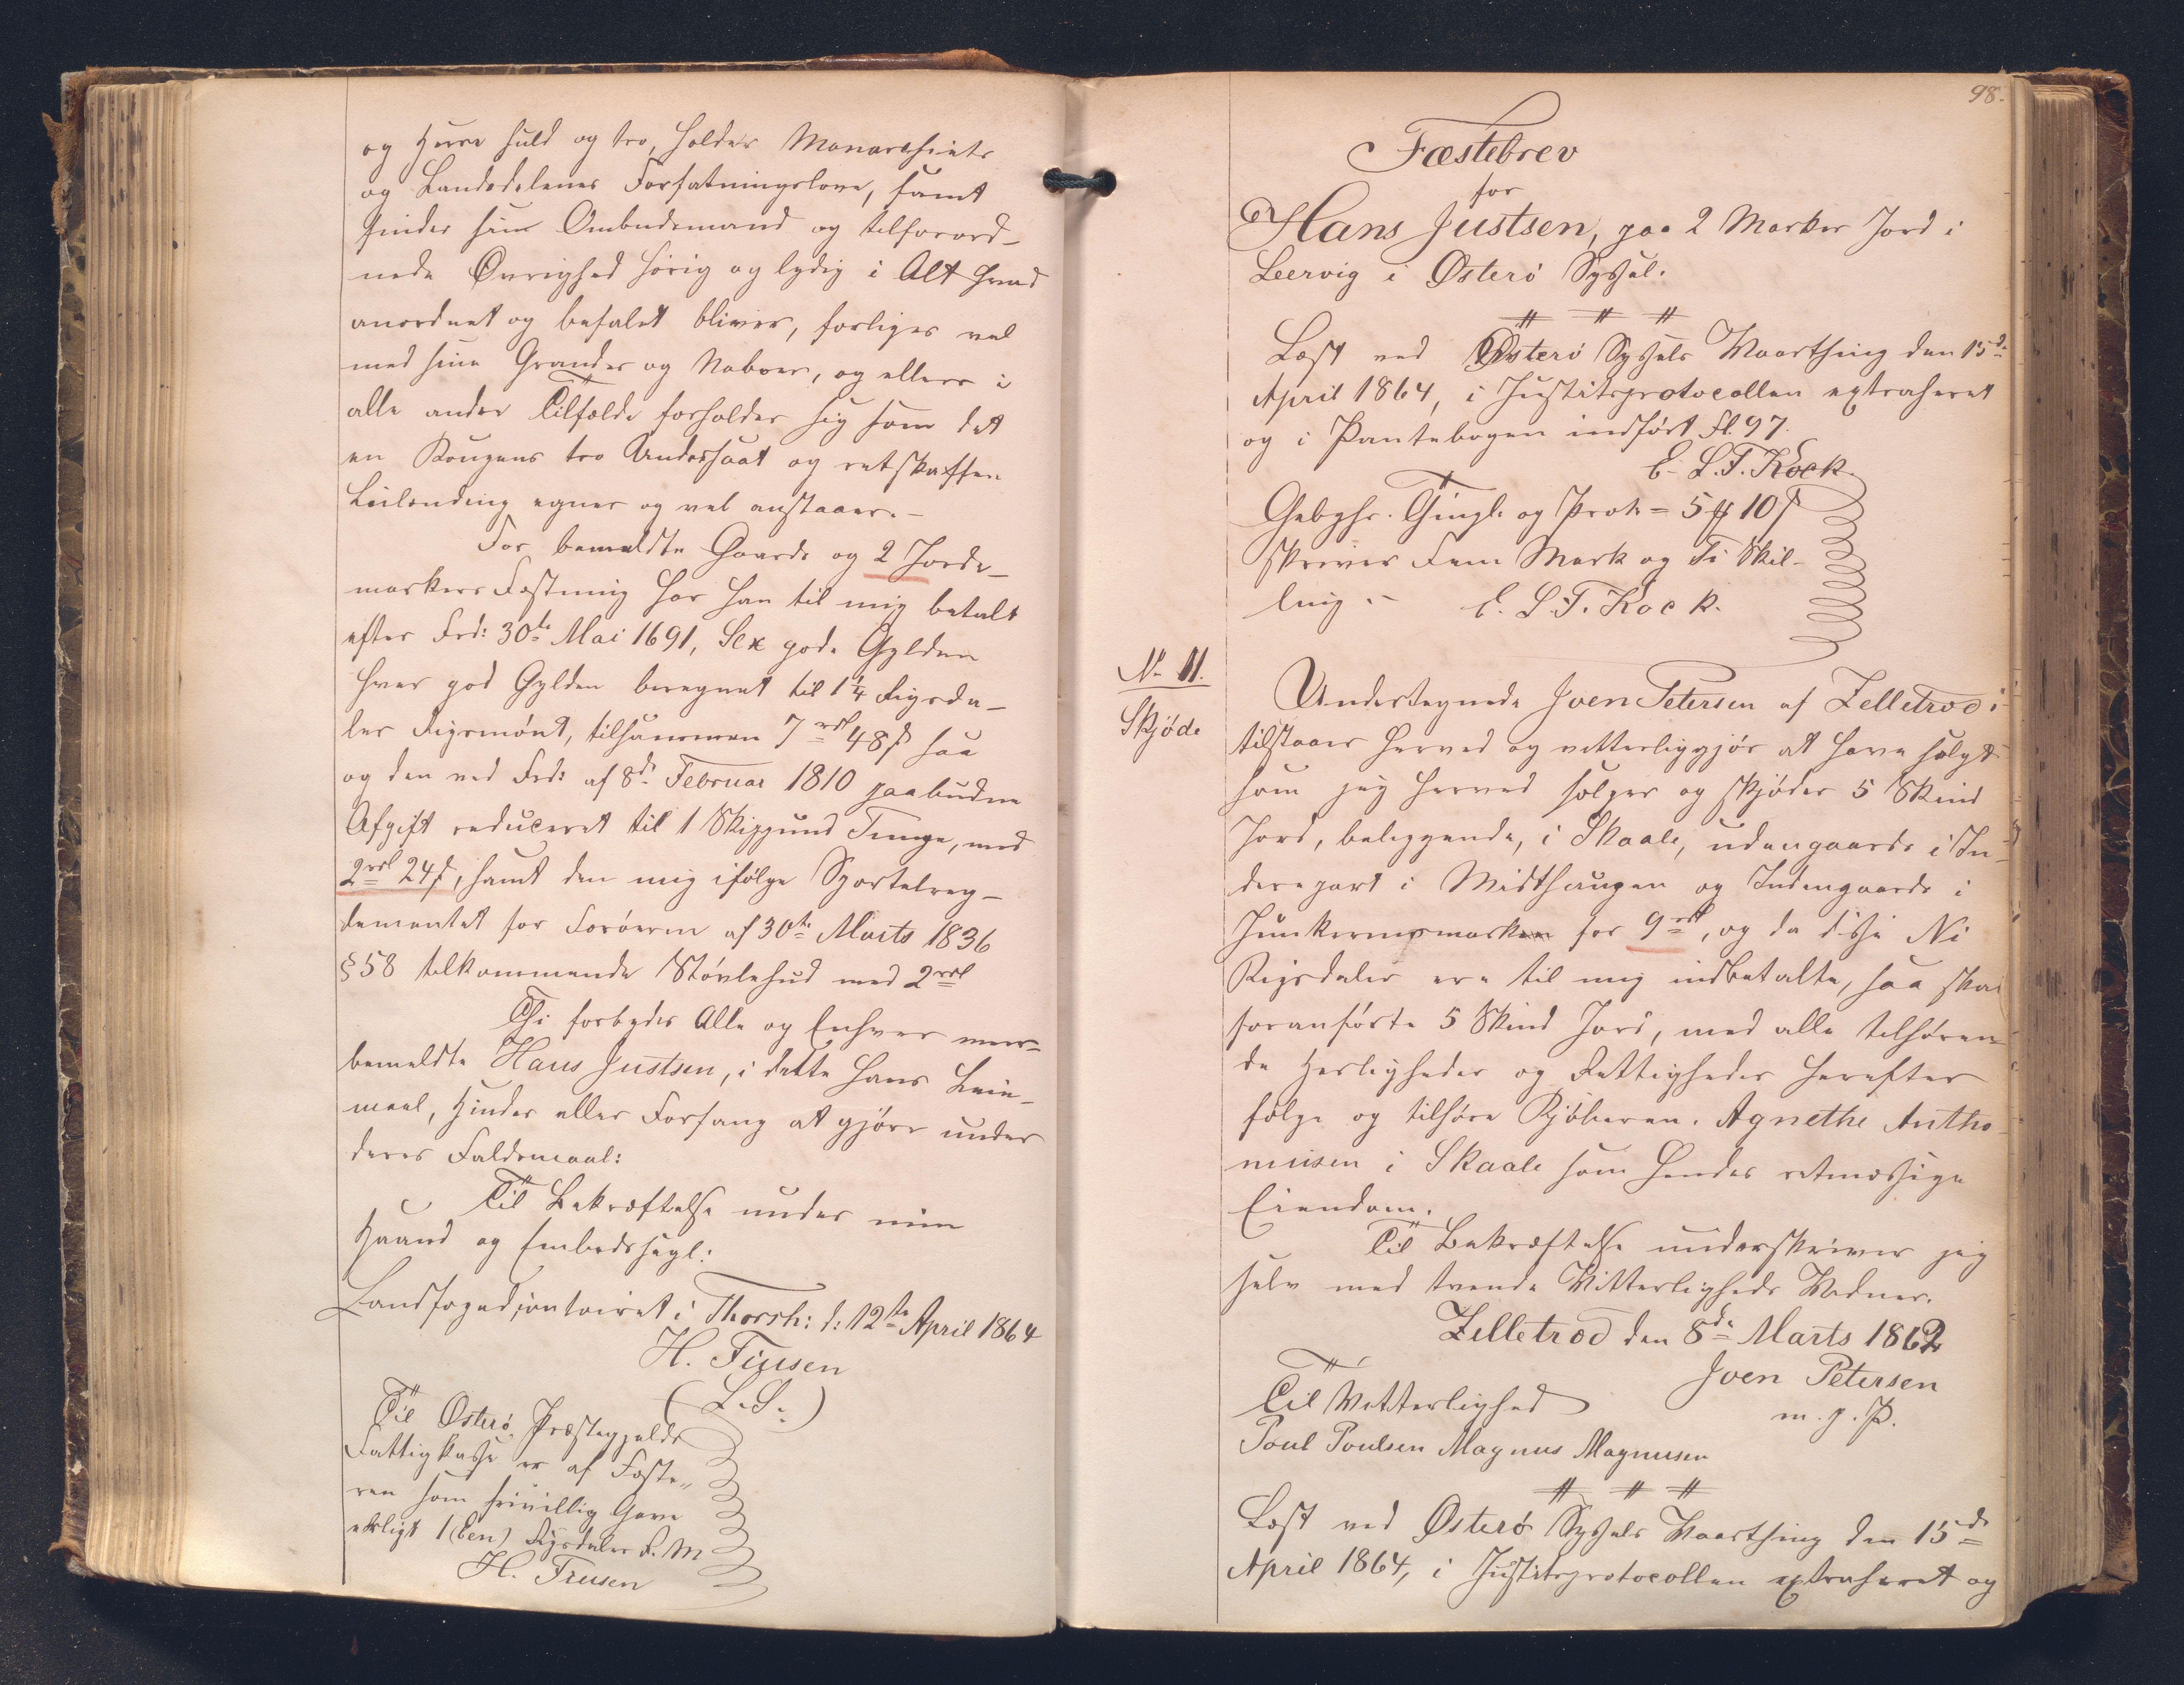 og Herre huld og tro, holder Monarchiets
og Landsdelenes Forfatningslove, samt
sinder sin Ombudsmand og tilforord-
nede Øvrighed hørig og lydig i Alt hvad
anordnet og befalet bliver, forliges vel
med sine Grander og Naboer, og ellers i
alle andre Tilfælde forholder sig som det
en Kongens tro Undersaat og retskaffen
Leilending egner og vel anstaaer.-
For bemeldte Gaards og 2 Jorde-
markers Fæstning har han til mig betalt
efter Frd: 30te Mai 1691, Sex gode Gylden
hver god Gylden beregnet til 1 1/4 Rigsda-
ler Rigsmønt, tilsammen 7 rdl 48 ß saa
og den ved Frd: af 8de Februar 1810 paabudne
Afgift reduceret til 1 Skippund Tunge, med
2 rdl 24 ß, samt den mig ifølge Sportelreg-
lementet for Færøerne af 30te Marts 1836
§ 58 tilkommende Støvlehud med 2 rdl
Thi forbydes Alle og Enhver meer-
bemeldte Hans Justsen, i dette hans Leie-
maal, Hinder eller Forfang at gjøre under
deres Faldsmaal:
Til Bekræftelse under min
Haand og Embedssegl:
Landfogedcontoiret i Thorsh: d: 12te April 1864
H. Finsen
(L.S.)
Til Østerø Præstegjelds
Fattigkasse er af Fæste-
ren som frivillig Gave
erlagt 1 (Een) Rigsdaler R. M
H. Finsen
98.
Fæstebrev
for
Hans Justsen, paa 2 Marker Jord i
Leervig i Østerø Syssel.
# # #
Læst ved Østerø Syssels Vaarthing den 15de
April 1864, i Justitsprotocollen extraheret
og i Pantebogen indført Fl. 97.
E. L. T. Kock
Gebyhr. Thingl. og Prot. = 5 ℳ 10 ß
skriver Fem Mark og Ti Skil-
ling.- E. L. T. Kock.
No 11.
Skjøde
Undertegnede Joen Petersen af Zelletræd i
tilstaaer herved og vitterliggjør at have solgt
som jeg herved sælger og skjøder 5 Skind
Jord, beliggende, i Skaale, udengaards i In-
derepart i Midthaugen og Indengaards i
Junkernesmarken for 9 rdl, og da disse Ni
Rigsdaler ere til mig indbetalte, saa skal
foranførte 5 Skind Jord, med alle tilhøren-
de Herligheder og Rettigheder herefter
følge og tilhøre Kjøberen. Agnethe Antho-
niusen i Skaale som hendes retmæssige
Eiendom.
Til Bekræftelse underskriver jeg
selv med tvende Vitterligheds Vidner.
Zelletræd den 8de Marts 1862
Joen Petersen
m. p. P.
Til Vitterlighed
Poul Poulsen Magnus Magnusen
# # #
Læst ved Østerø Syssels Vaarthing den 15de
April 1864, i Justitsprotocollen extraheret og